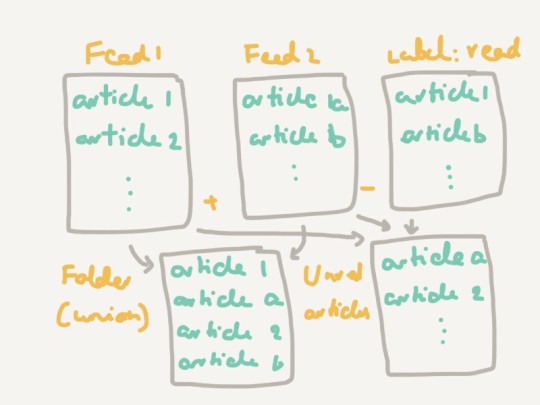 Feed 1
article 1
article 2
+
Feed 2
article a
article b
-
Label: read
article 1
article b
Folder
(union)
article 1
article a
article 2
article b
Unread
articles
article a
article 2